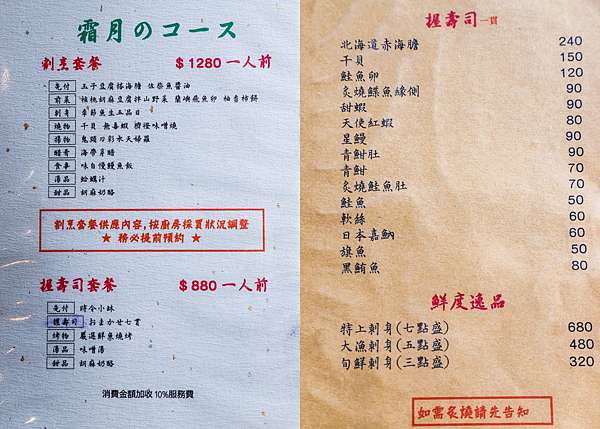 霜月のコース
割烹套餐 $1280 一人前
先付 玉子豆腐搭海膽 佐柴魚醬油
前菜 核桃胡麻豆腐拌山野菜 蘭嶼飛魚卵 柚香柿餅
刺身 季節魚生五品目
燒物 干貝 無毒蝦 柳橙味噌燒
揚物 鬼頭刀彩水天婦羅
醋肴 海帶芽醋
食事 味自慢鰻魚飯
湯品 蛤蠣汁
甜品 胡麻奶酪
割烹套餐供應內容,按廚房採買狀況調整
★ 務必提前預約 ★
握壽司套餐 $880 一人前
先付 時令小缽
握壽司 おまかせ七貫
烤物 嚴選鮮魚燒烤
湯品 味噌湯
甜品 胡麻奶酪
消費金額加收10%服務費
握壽司一貫
北海道赤海膽 240
干貝 150
鮭魚卵 120
炙燒鰈魚緣側 90
甜蝦 90
天使紅蝦 80
星鰻 90
青魽肚 90
青魽 70
炙燒鮭魚肚 70
鮭魚 50
軟絲 60
日本嘉魶 60
旗魚 50
黑鮪魚 80
鮮度逸品
特上刺身(七點盛) 680
大漁刺身(五點盛) 480
旬鮮刺身(三點盛) 320
如需炙燒請先告知